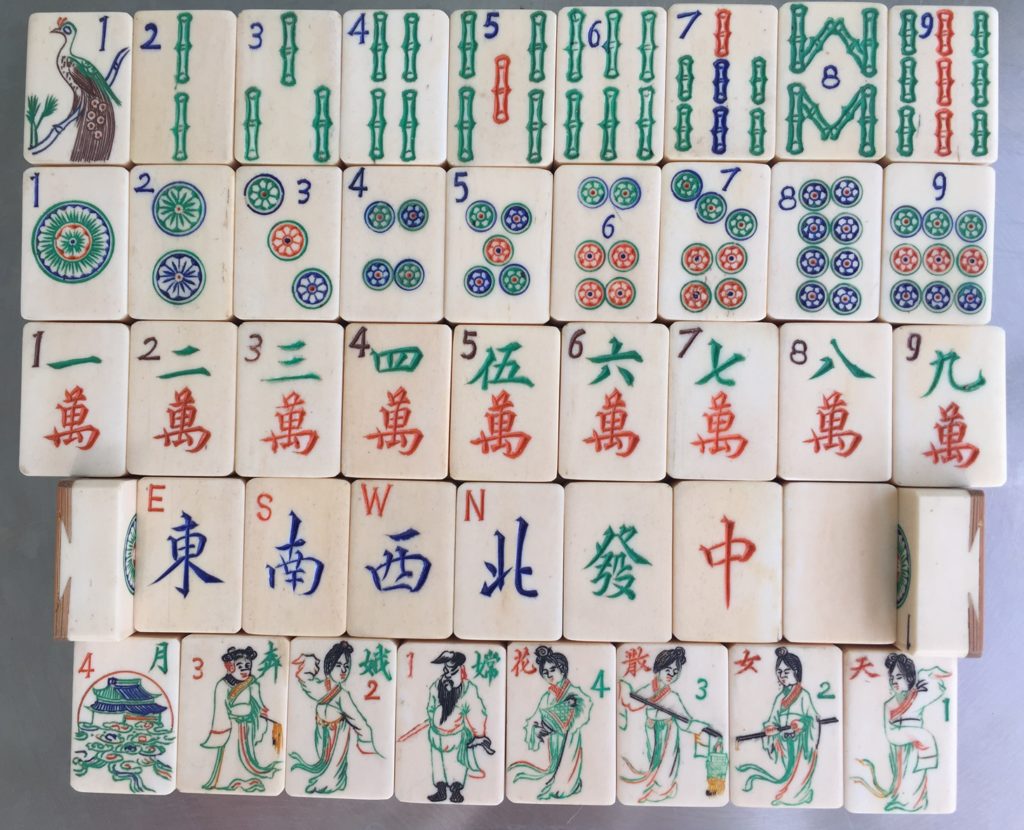 1 2 3 4 5 6 7 8 9
1 2 3 4 5 6 7 8 9
1 一 萬 2 二 萬 3 三 萬 4 四 萬 5 伍 萬 6 六 萬 7 七 萬 8 八 萬 9 九 萬
E 東 S 南 W 西 N 北 發 中 1
4 月 3 奔 娥 2 1 嫦 花 4 散 3 女 2 天 1